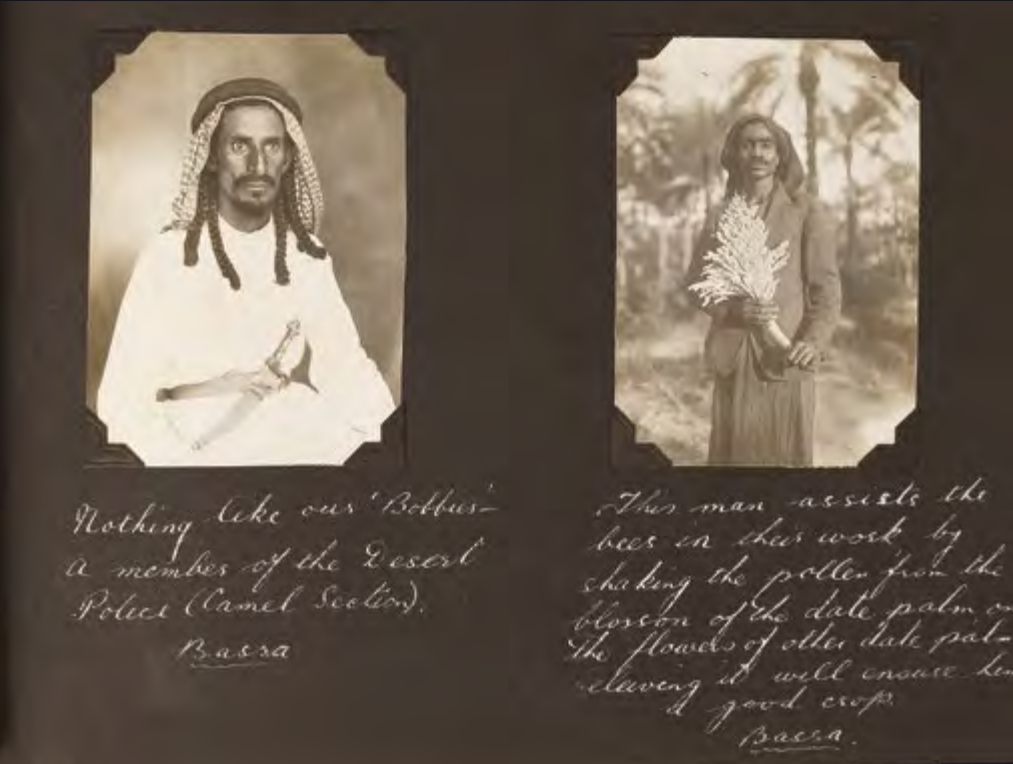 Nothing like our 'Bobbies' –
a member of the Desert
Police (Camel Section).
Basra
This man assists the
bees in their work by
shaking the pollen from the
blossom of the date palm on
the flowers of other date pal-
will ensure him
a good crop.
Basra.